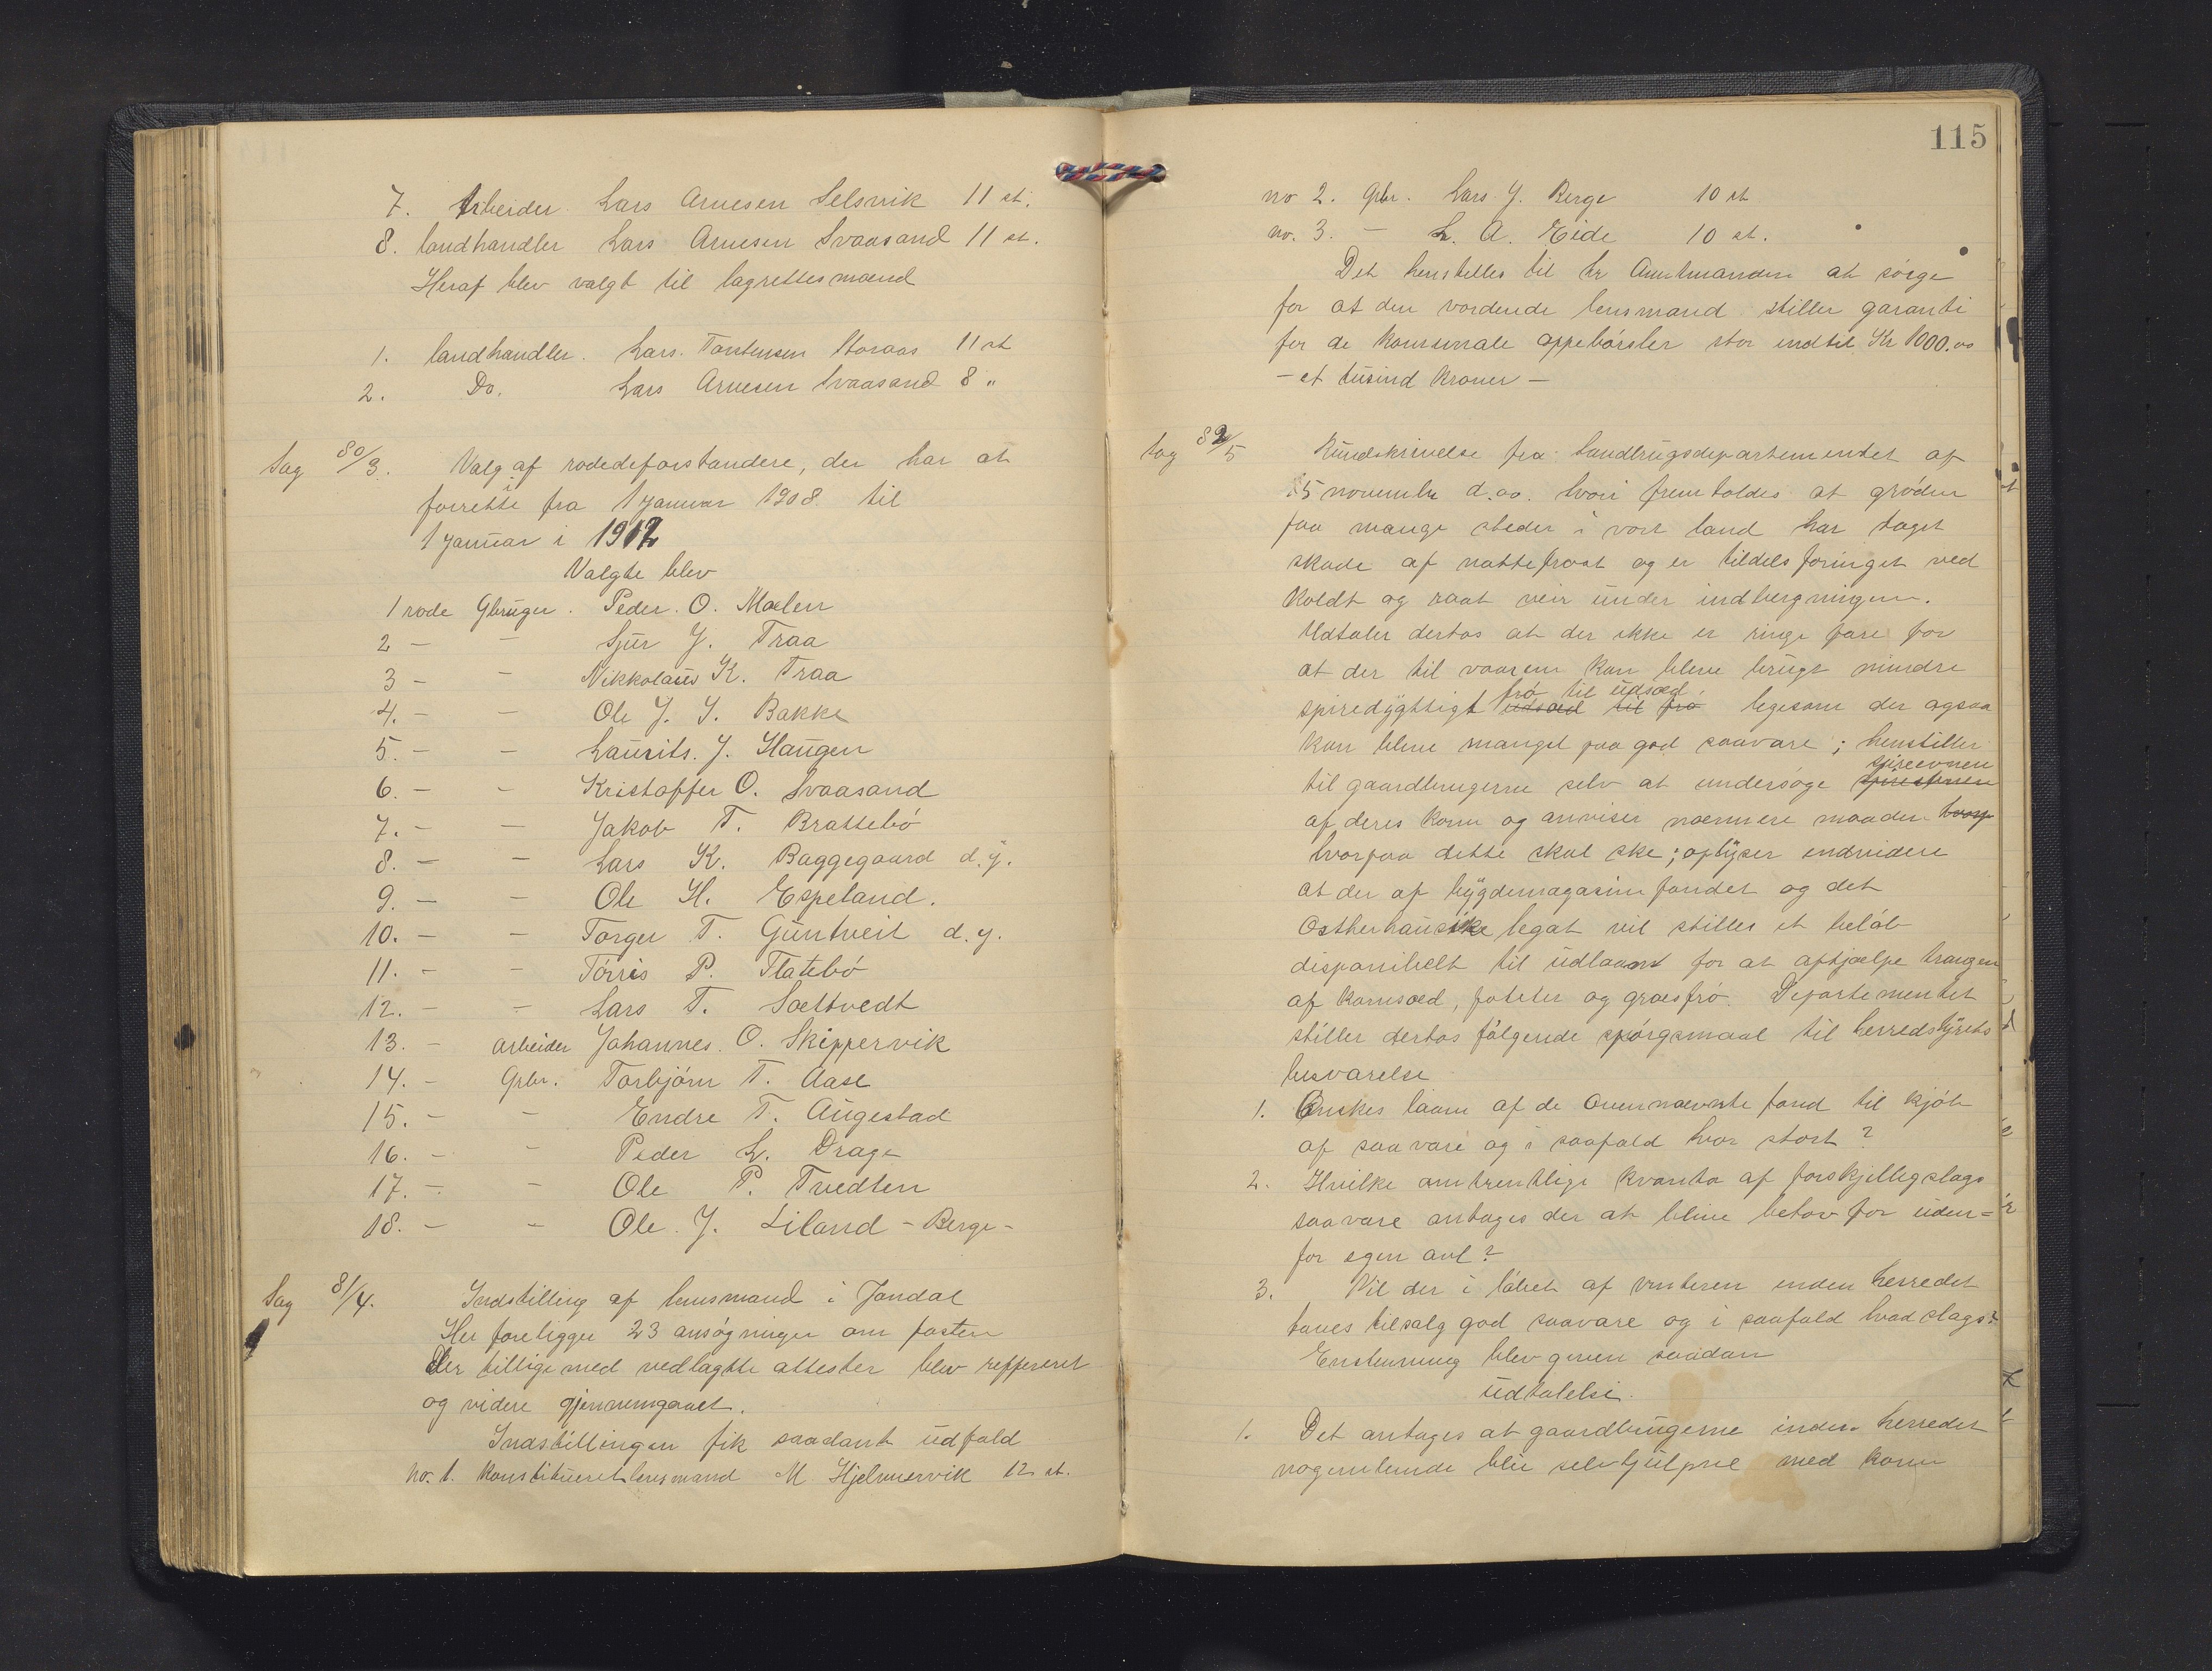 7. Arbeider Lars Arnesen Selsvik 11 st.
8. landhandler Lars Arnesen Svaasand 11 st.
Heraf blev valgt til lagrettesmænd
1. landhandler. Lars. Torstensen Storaas 11 st
2. Do. Lars Arnesen Svaasand 8 "
Sag 80/3. Valg af rodedeforstandere, der har at
forrette fra 1 januar 1908 til
1 januar i 1912
Valgte blev
1 rode Gbruger. Peder. O. Mælen
2 — — Sjur J. Traa
3 — — Nikkolaus K. Traa
4. — — Ole J. S. Bakke
5. — — Laurits. J. Haugen
6. — — Kristoffer O. Svaasand
7. — — Jakob T. Brattebó
8. — — Lars K. Baggegaard d.y.
9. — — Ole H. Espeland.
10. — — Torger T. Guntveit d.y.
11. — — Tórris P. Flatebó
12. — — Lars T. Sættvedt
13. — arbeider Johannes. O. Skippervik
14. — Grbr. Torbjórn T. Aase
15. — — Endre T. Augestad
16. — — Peder L. Drage
17. — — Ole P. Tvedten
18. — — Ole. J. Liland - Berge -
Sag 81/4. Indstilling af lensmand i Jondal
Her foreligger 23 ansógninger om posten
Der tilligemed vedlagte attester blev reffereret
og videre gjennemgaaet.
Indstillingen fik saadant udfald
no. 1. Konstitueret lensmand M Hjelmervik 12 st.
115
no 2. Gbr. Lars J. Berge 10 st
no. 3. — L. A. Eide 10 st.
Det henstilles til hr Amtmanden at sórge
for at den vordende lensmand stiller garanti
for de kommunale oppebórsler stor indtil Kr 1000.00
— et tusind kroner —
Sag 82/5 Rundskrivelse fra Landbrugsdepartementet af
15 novembr d.aa. hvori fremholdes at gróden
paa mange steder i vort land har taget
skade af nattefrost og er tildels foringet ved
koldt og raat veir under indbergningen.
Udtaler dertos at der ikke er ringe fare for
at der til vaaren kan blive brugt mindre
spiredygtigt udsæd til fró fró til udsæd legesom der ogsaa
kan blive mangel paa god saavare; henstiller
til gaardbrugerne selv at undersóge spireevnen
af deres korn og anviser nærmere maaden hvorp
hvorpaa dette skal ske; oplyser endvidere
at der af bygdemagasinfondet og det
Ostherhausike legat vil stilles et beló b
disponibelt til udlaant for at afhjælpe trangen
af kornsæd, poteter og græsfró. Departementet
stiller dertos fólgende spórgsmaal til herredstyrets
besvarelse
1. Ónskes laan af de ovennævnte fond til kjób
af saavare og i saafald hvor stort?
2. Hvilke omtrentlige kvanta af forskjelligslags
saavare antages der at blive behov for uden=
for egen avl?
3. Vil der i lóbet af vinteren inden herredet
haves tilsalg god saavare og i saafald hvad slags?
Enstemmig blev given saadan
udtalelse.
1. Det antages at gaardbrugerne inden herredet
nogenlunde blir selvhjulpne med korn